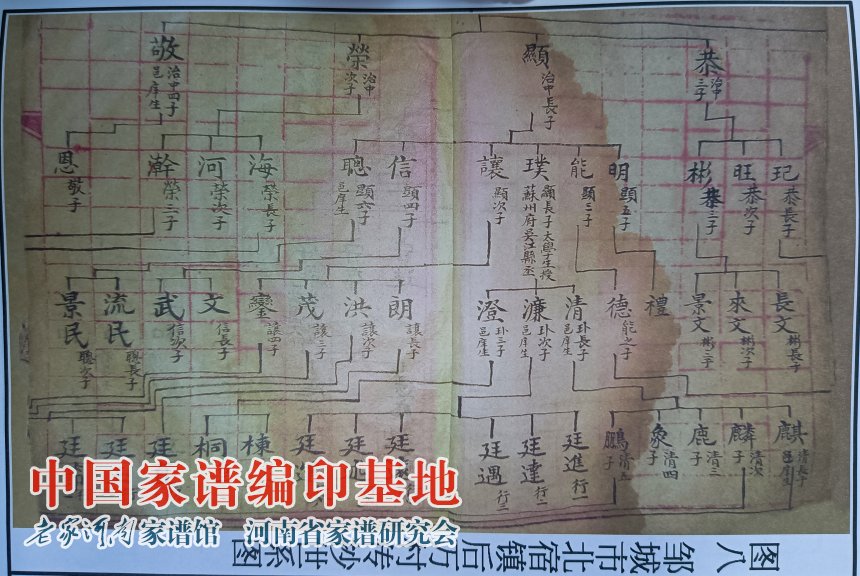 恭 治中三子
顯 治中長子
榮 治中次子
敬 治中四子 邑庠生
玘 恭長子
旺 恭次子
彬 恭三子
明 顯五子
能 顯三子
璞 顯長子太學生授蘇州府吳江縣丞
讓 顯次子
信 顯四子
聰 顯六子 邑庠生
海 榮長子
河 榮次子
瀚 榮三子
恩 敬子
長文 彬長子
來文 彬次子
景文 彬三子
禮
德 能之子
清 卦長子 邑庠生
濂 卦次子 邑庠生
澄 卦三子 邑庠生
朗 讓長子
洪 讓次子
茂 讓三子
讓四子
文 信長子
武 信次子
流民 聰長子
景民 聰次子
麒 清長子 邑庠生
麟 清次子
鹿 清三子
清四子
鵬 清五子
廷進 行一
廷達 行二
廷遇 行三
廷
廷
廷
棟
桐
廷
廷
廷
中国家谱编印基地
老家河南家谱馆 河南省家谱研究会
图八 邹城市北宿镇后万村转沙世系图